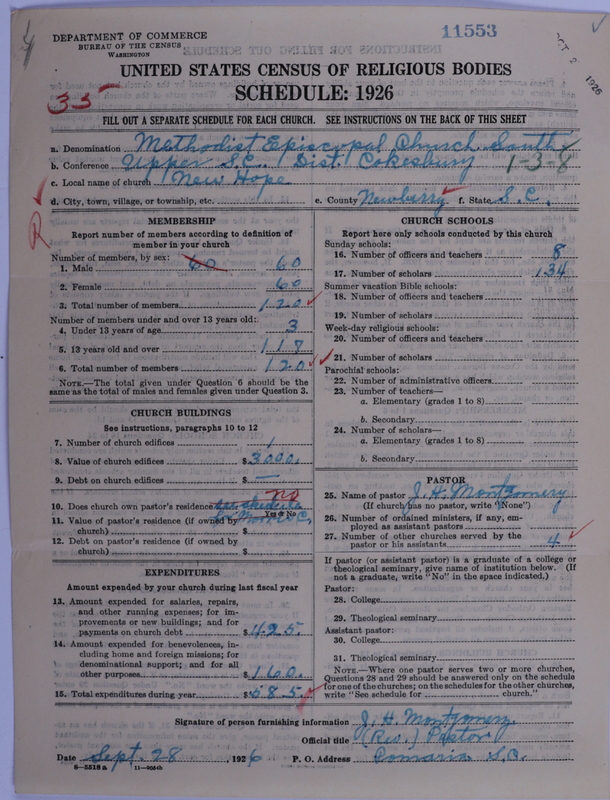 DEPARTMENT OF COMMERCE
BUREAU OF THE CENSUS
WASHINGTON
11553
OCT 2 1926
UNITED STATES CENSUS OF RELIGIOUS BODIES
SCHEDULE: 1926
35
FILL OUT A SEPARATE SCHEDULE FOR EACH CHURCH. SEE INSTRUCTIONS ON THE BACK OF THIS SHEET
a. Denomination Methodist Episcopal Church South
b. Conference Upper S.C. Dist. Cokesbury 1-3-8
c. Local name of church New Hope
d. City, town, village, or township, etc. e. County Newberry f. State S.C.
R
MEMBERSHIP
Report number of members according to definition of
member in your church
Number of members, by sex:
1. Male 60 60
2. Female 60
3. Total number of members 120
Number of members under and over 13 years old:
4. Under 13 years of age 3
5. 13 years old and over 118
6. Total number of members 120
NOTE.—The total given under Question 6 should be the
same as the total of males and females given under Question 3.
CHURCH BUILDINGS
See instructions, paragraphs 10 to 12
7. Number of church edifices 1
8. Value of church edifices $ 3000.
9. Debt on church edifices $ —
10. Does church own pastor's residence no
Yes or No
11. Value of pastor's residence (if owned by
church) $
12. Debt on pastor's residence (if owned by
church) $
EXPENDITURES
Amount expended by your church during last fiscal year
13. Amount expended for salaries, repairs,
and other running expenses; for im-
provements or new buildings; and for
payments on church debt $ 425.
14. Amount expended for benevolences, in-
cluding home and foreign missions; for
denominational support; and for all
other purposes $ 160.
15. Total expenditures during year $ 585.
CHURCH SCHOOLS
Report here only schools conducted by this church
Sunday schools:
16. Number of officers and teachers 8
17. Number of scholars 134
Summer vacation Bible schools:
18. Number of officers and teachers
19. Number of scholars
Week-day religious schools:
20. Number of officers and teachers
21. Number of scholars
Parochial schools:
22. Number of administrative officers
23. Number of teachers—
a. Elementary (grades 1 to 8)
b. Secondary
24. Number of scholars—
a. Elementary (grades 1 to 8)
b. Secondary
PASTOR
25. Name of pastor J. H. Montgomery
(If church has no pastor, write "None")
26. Number of ordained ministers, if any, em-
ployed as assistant pastors
27. Number of other churches served by the
pastor or his assistants 4
If pastor (or assistant pastor) is a graduate of a college or
theological seminary, give name of institution below. (If
not a graduate, write "No" in the space indicated.)
Pastor:
28. College
29. Theological seminary
Assistant pastor:
30. College
31. Theological seminary
NOTE.—Where one pastor serves two or more churches,
Questions 28 and 29 should be answered only on the schedule
for one of the churches; on the schedules for the other churches,
write "See schedule for church."
Signature of person furnishing information J. H. Montgomery
Official title (Rev.) Pastor
Date Sept. 28, 1926 P. O. Address Pomaria S.C.
8-5518 a